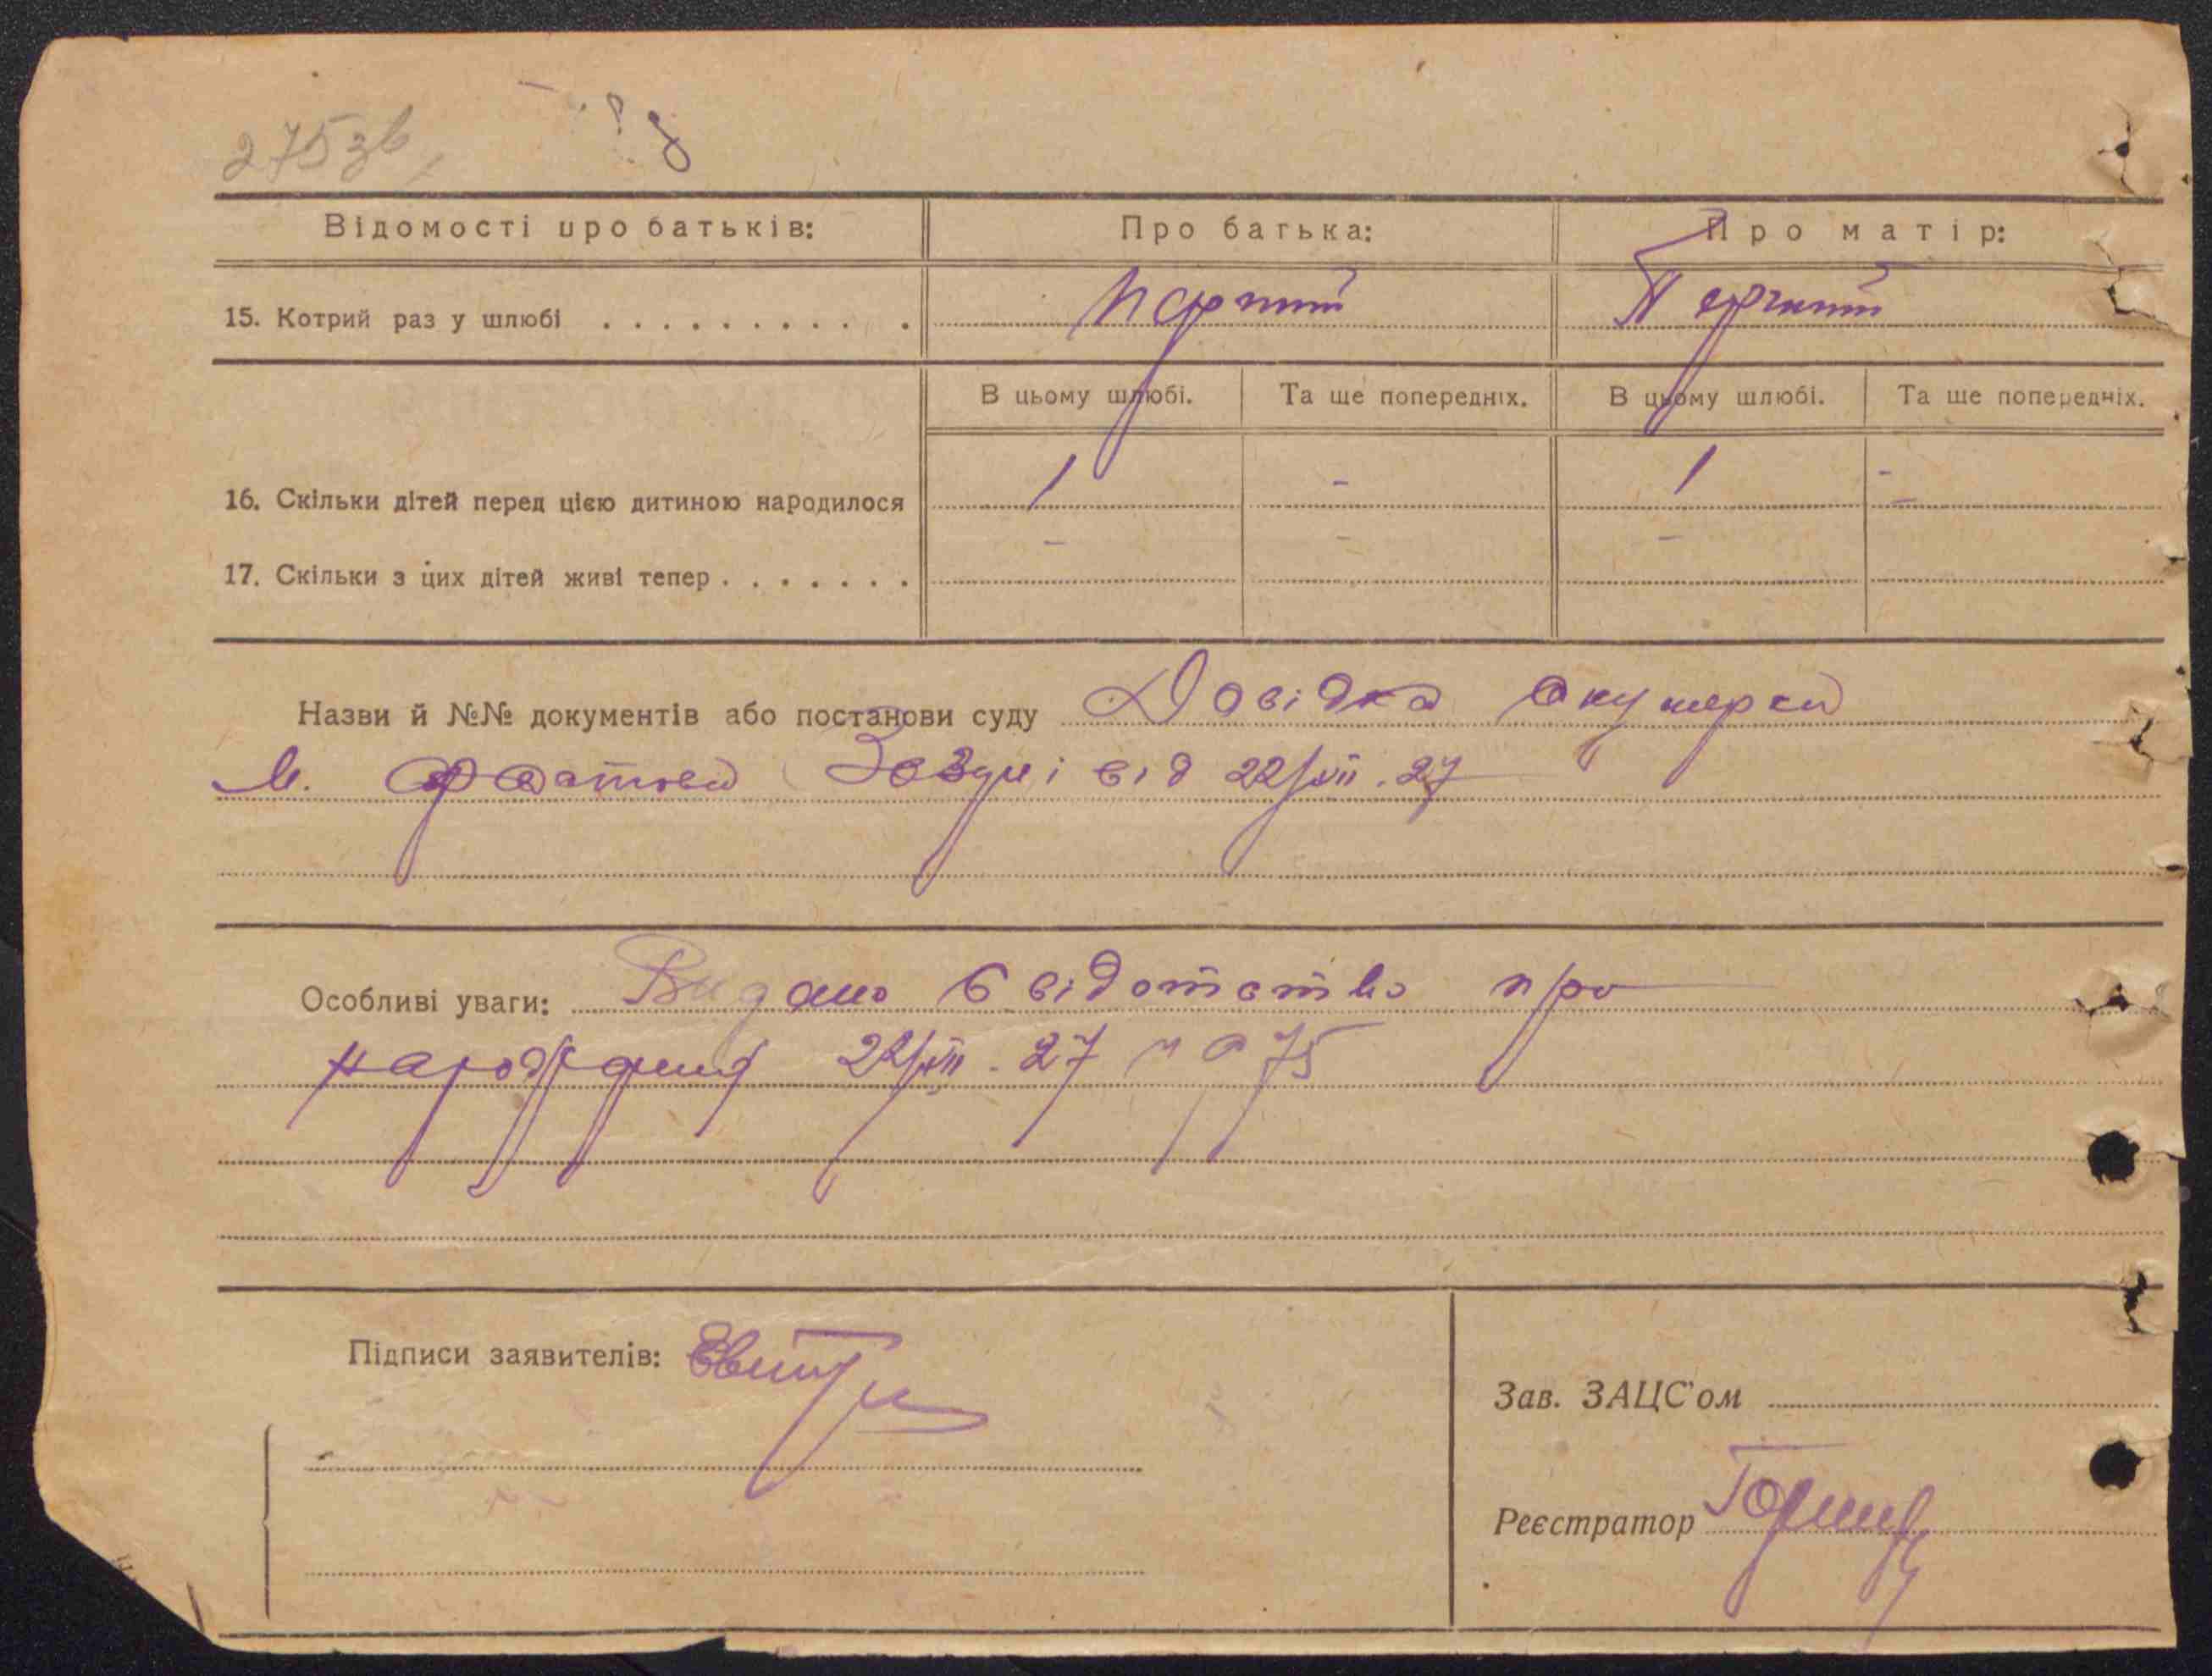 275 зв
Відомості про батьків: Про батька: Про матір:
15. Котрий раз у шлюбі . . . . . . . . . Перший Перший
В цьому шлюбі. Та ще попередніх. В цьому шлюбі. Та ще попередніх.
16. Скільки дітей перед цією дитиною народилося 1 - 1 -
17. Скільки з цих дітей живі тепер . . . . . . . - - -
Назви й №№ документів або постанови суду Довідка акушерки
м. Фастова від 22/XII.27
Особливі уваги: Видано свідотство про
народження 22/XII.27 75
Підписи заявителів:
Зав. ЗАЦС'ом
Реєстратор